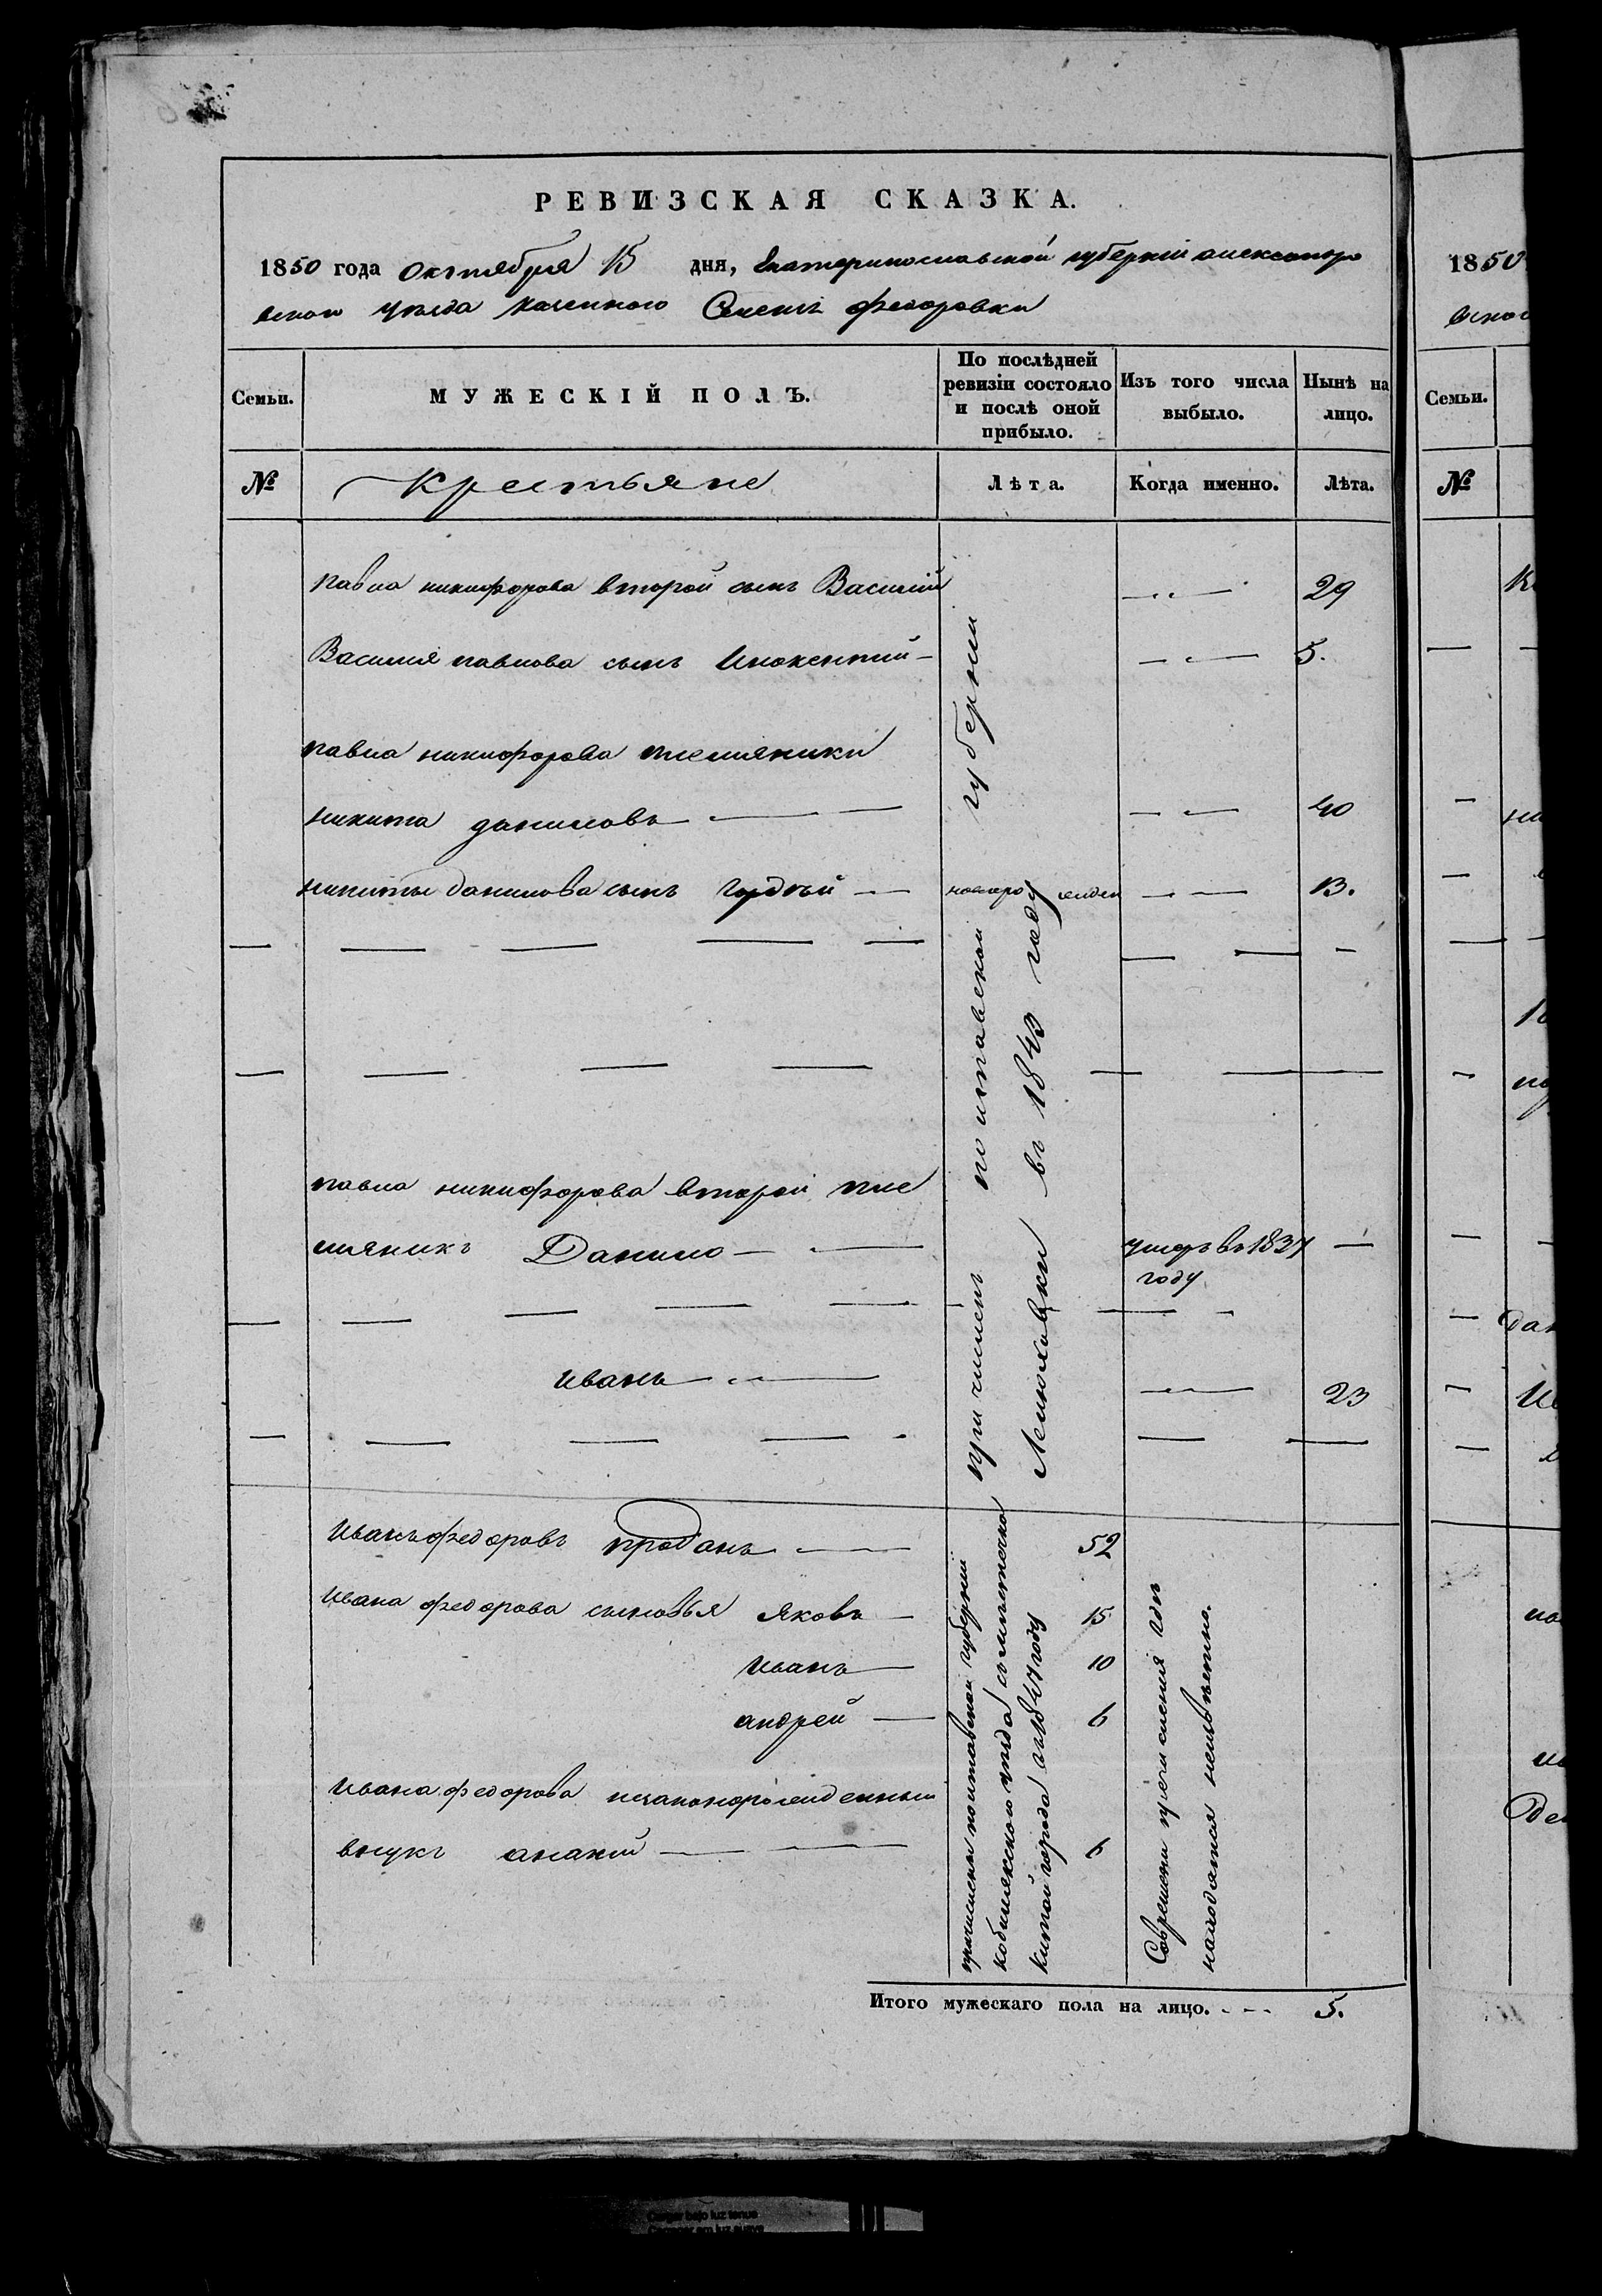 РЕВИЗСКАЯ СКАЗКА.
1850 года октября 15 дня, Екатеринославской губернiи александро
вскаго уѣзда казенного Селенiя федоровки
Семьи.
МУЖЕСКІЙ ПОЛЪ.
По послѣдней ревизіи состояло и послѣ оной прибыло.
Изъ того числа выбыло.
Нынѣ на лицо.
№
Крестьяне
Лѣта.
Когда именно.
Лѣта.
павла никифорова второй сынъ Василий 29
Василия павлова сынъ Инокентий 5.
павла никифорова племяники
никита даниловъ 40
никиты данилова сынъ гордѣй новорожден 13.
павла никифорова второй пле
мяникъ Данило умеръ въ 1837
году
иванъ 23
причисленъ полтавской губернии
в 1843 году
иванъ федоровъ проданъ 52
ивана федорова сыновья яковъ 15
иванъ 10
андрей 6
ивана федорова незаконорожденный
внукъ ананий 6
причислены полтавской губернии
кобылякского уѣзда
1847 году
Современи причисления гдѣ
находятся неизвѣстно.
Итого мужескаго пола на лицо. 5.
1850
Семьи.
№